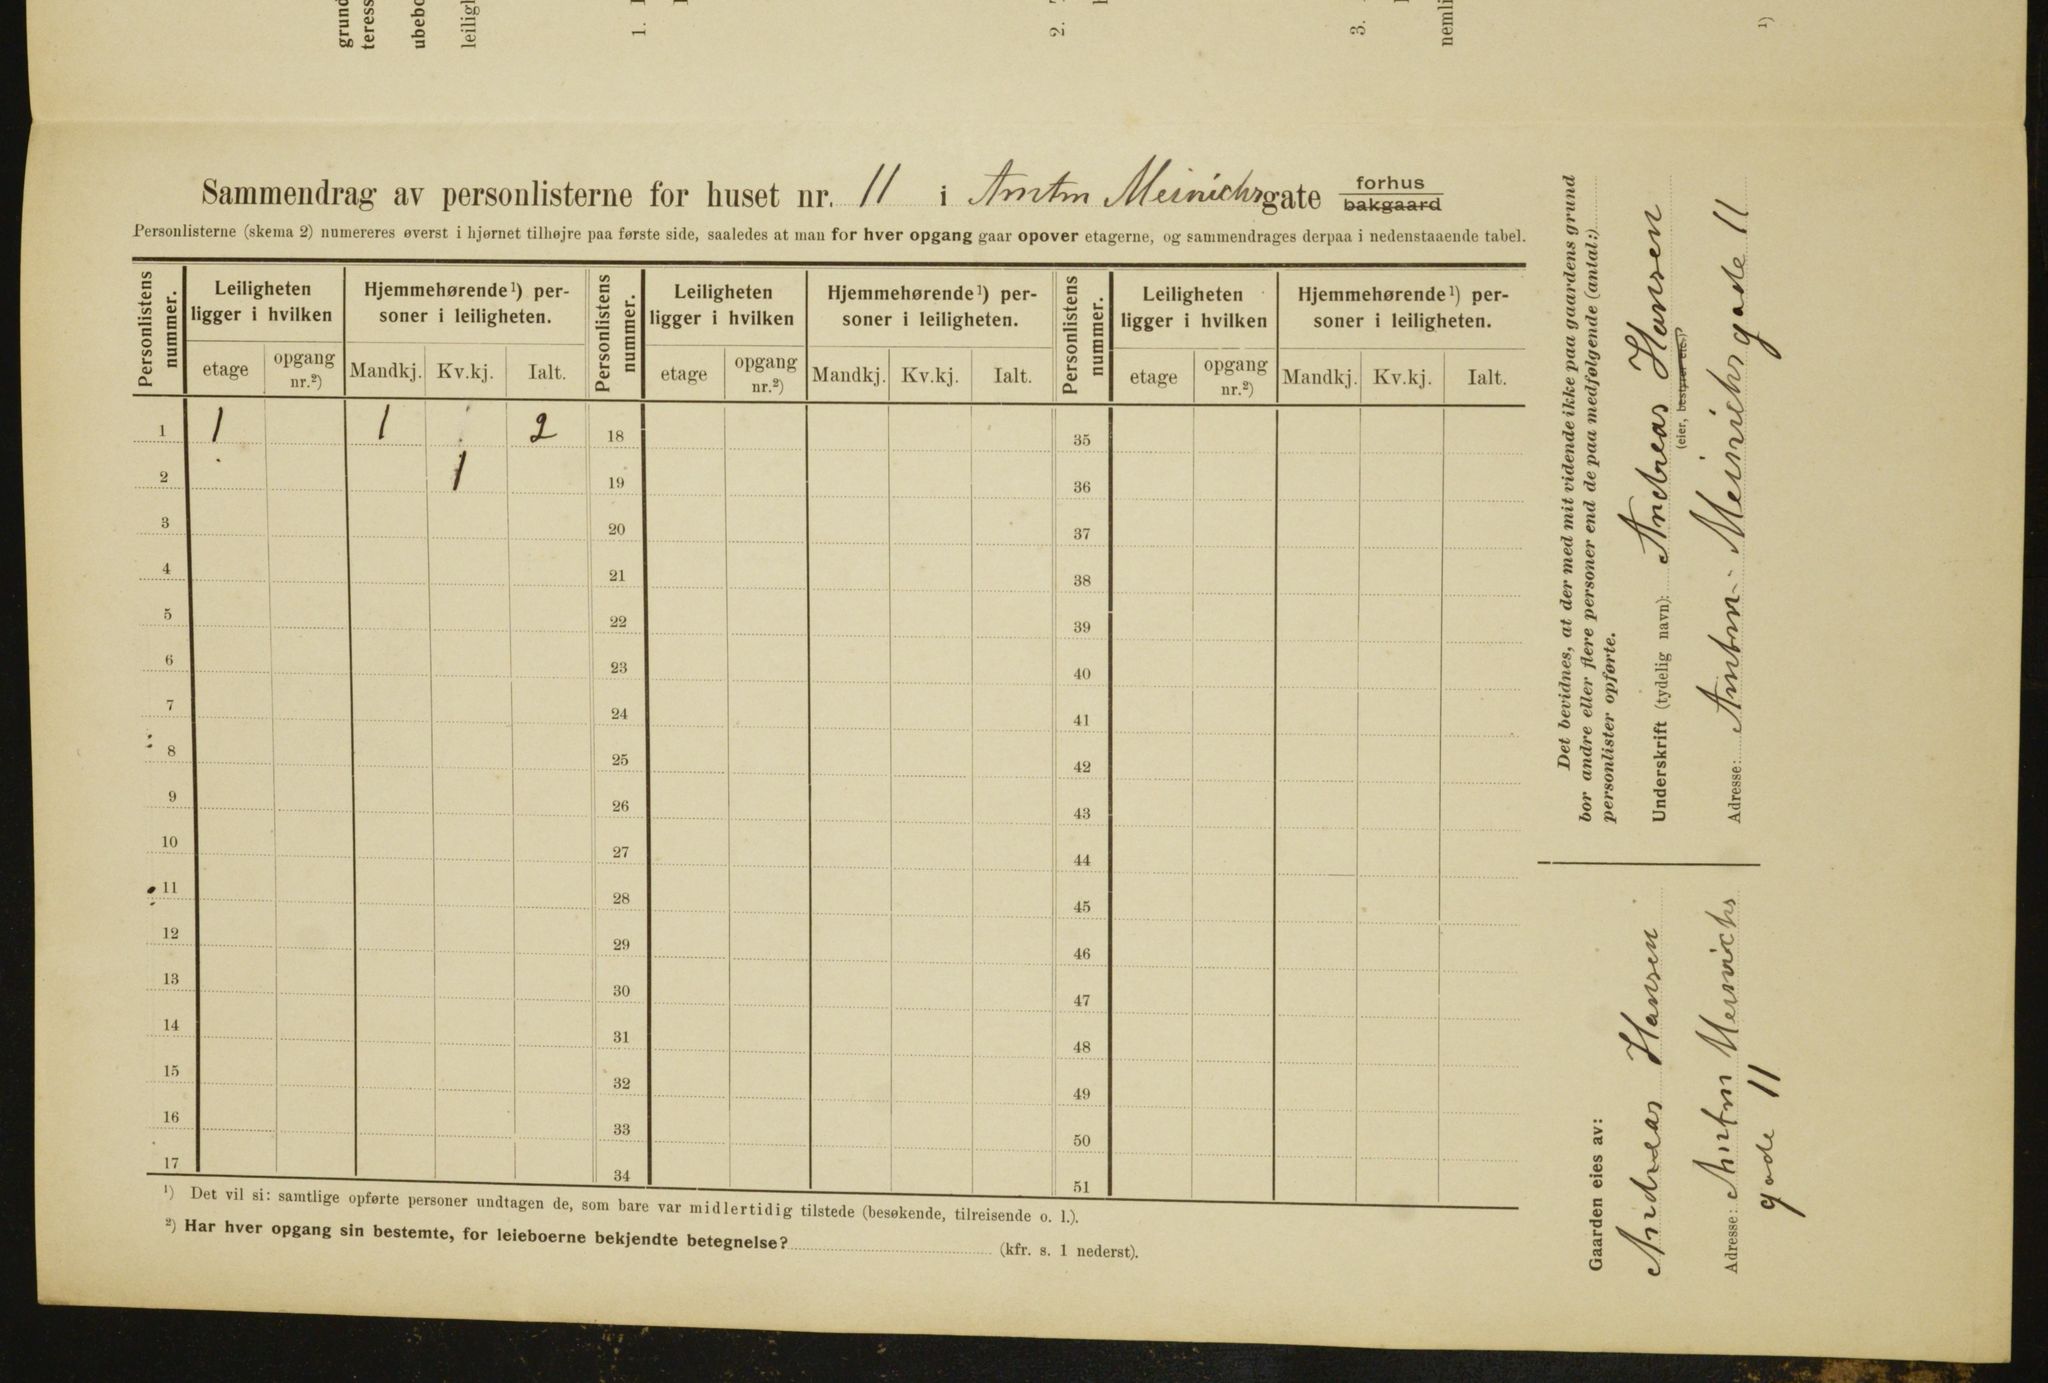 grund
teress
ubebo
leiligh
1.
2.
3.
nemli
1)
Sammendrag av personlisterne for huset nr. 11 i Amtm Meinichsgate forhus
bakgaard
Personlisterne (skema 2) numereres øverst i hjørnet tilhøjre paa første side, saaledes at man for hver opgang gaar opover etagerne, og sammendrages derpaa i nedenstaaende tabel.
Personlistens nummer. Leiligheten ligger i hvilken Hjemmehørende¹) personer i leiligheten. Personlistens nummer. Leiligheten ligger i hvilken Hjemmehørende¹) personer i leiligheten. Personlistens nummer. Leiligheten ligger i hvilken Hjemmehørende¹) personer i leiligheten.
etage opgang nr.²) Mandkj. Kv.kj. Ialt. etage opgang nr.²) Mandkj. Kv.kj. Ialt. etage opgang nr.²) Mandkj. Kv.kj. Ialt.
1 1 1 2 18 35
2 1 19 36
3 20 37
4 21 38
5 22 39
6 23 40
7 24 41
8 25 42
9 26 43
10 27 44
11 28 45
12 29 46
13 30 47
14 31 48
15 32 49
16 33 50
17 34 51
¹) Det vil si: samtlige opførte personer undtagen de, som bare var midlertidig tilstede (besøkende, tilreisende o. l.).
²) Har hver opgang sin bestemte, for leieboerne bekjendte betegnelse? (kfr. s. 1 nederst).
Det bevidnes, at der med mit vidende ikke paa gaardens grund
bor andre eller flere personer end de paa medfølgende (antal:)
personlister opførte.
Underskrift (tydelig navn): Andreas Hansen
(eier, bestyrer etc.)
Adresse: Amtm. Meinichsgade 11
Gaarden eies av:
Andreas Hansen
Adresse: Amtm Meinichs
gade 11